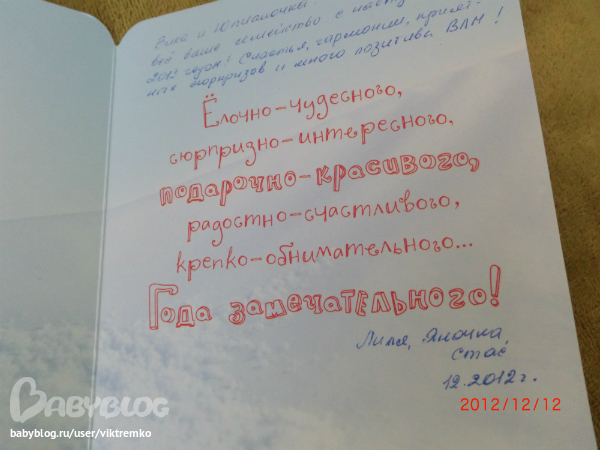 и Юлианочка!
всё ваше семейство с наступ
2013 годом! Счастья, гармонии, прият-
ных сюрпризов и много позитива ВАМ!
Ёлочно-чудесного,
сюрпризно-интересного,
подарочно-красивого,
радостно-счастливого,
крепко-обнимательного...
Года замечательного!
Лиля, Ялочка,
Стас
12.2012г.
2012/12/12
BABYBLOG
babyblog.ru/user/viktremko